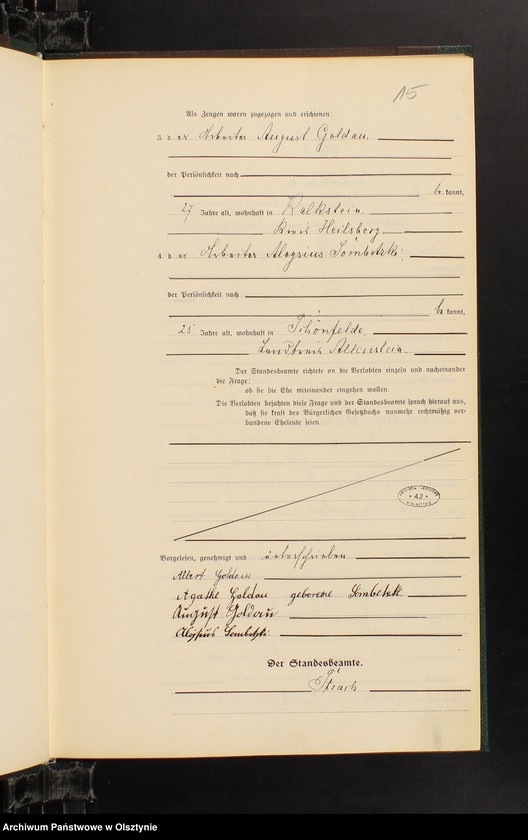 15
Als Zeugen waren zugezogen und erschienen:
3. der Arbeiter August Goldau,
der Persönlichkeit nach
be kannt,
27 Jahre alt, wohnhaft in Kalkstein
Kreis Heilsberg
4. der Arbeiter Aloysius Sombetzki,
der Persönlichkeit nach
be kannt,
25 Jahre alt, wohnhaft in Schönfelde,
Landkreis Allenstein.
Der Standesbeamte richtete an die Verlobten einzeln und nacheinander
die Frage:
ob sie die Ehe miteinander eingehen wollen.
Die Verlobten bejahten diese Frage und der Standesbeamte sprach hierauf aus,
daß sie kraft des Bürgerlichen Gesetzbuchs nunmehr rechtmäßig ver-
bundene Eheleute seien.
42
Vorgelesen, genehmigt und unterschrieben
Albert Goldau
Agathe Goldau geborene Sombetzki
August Goldau
Aloysius Sombetzki
Der Standesbeamte.
Archiwum Państwowe w Olsztynie